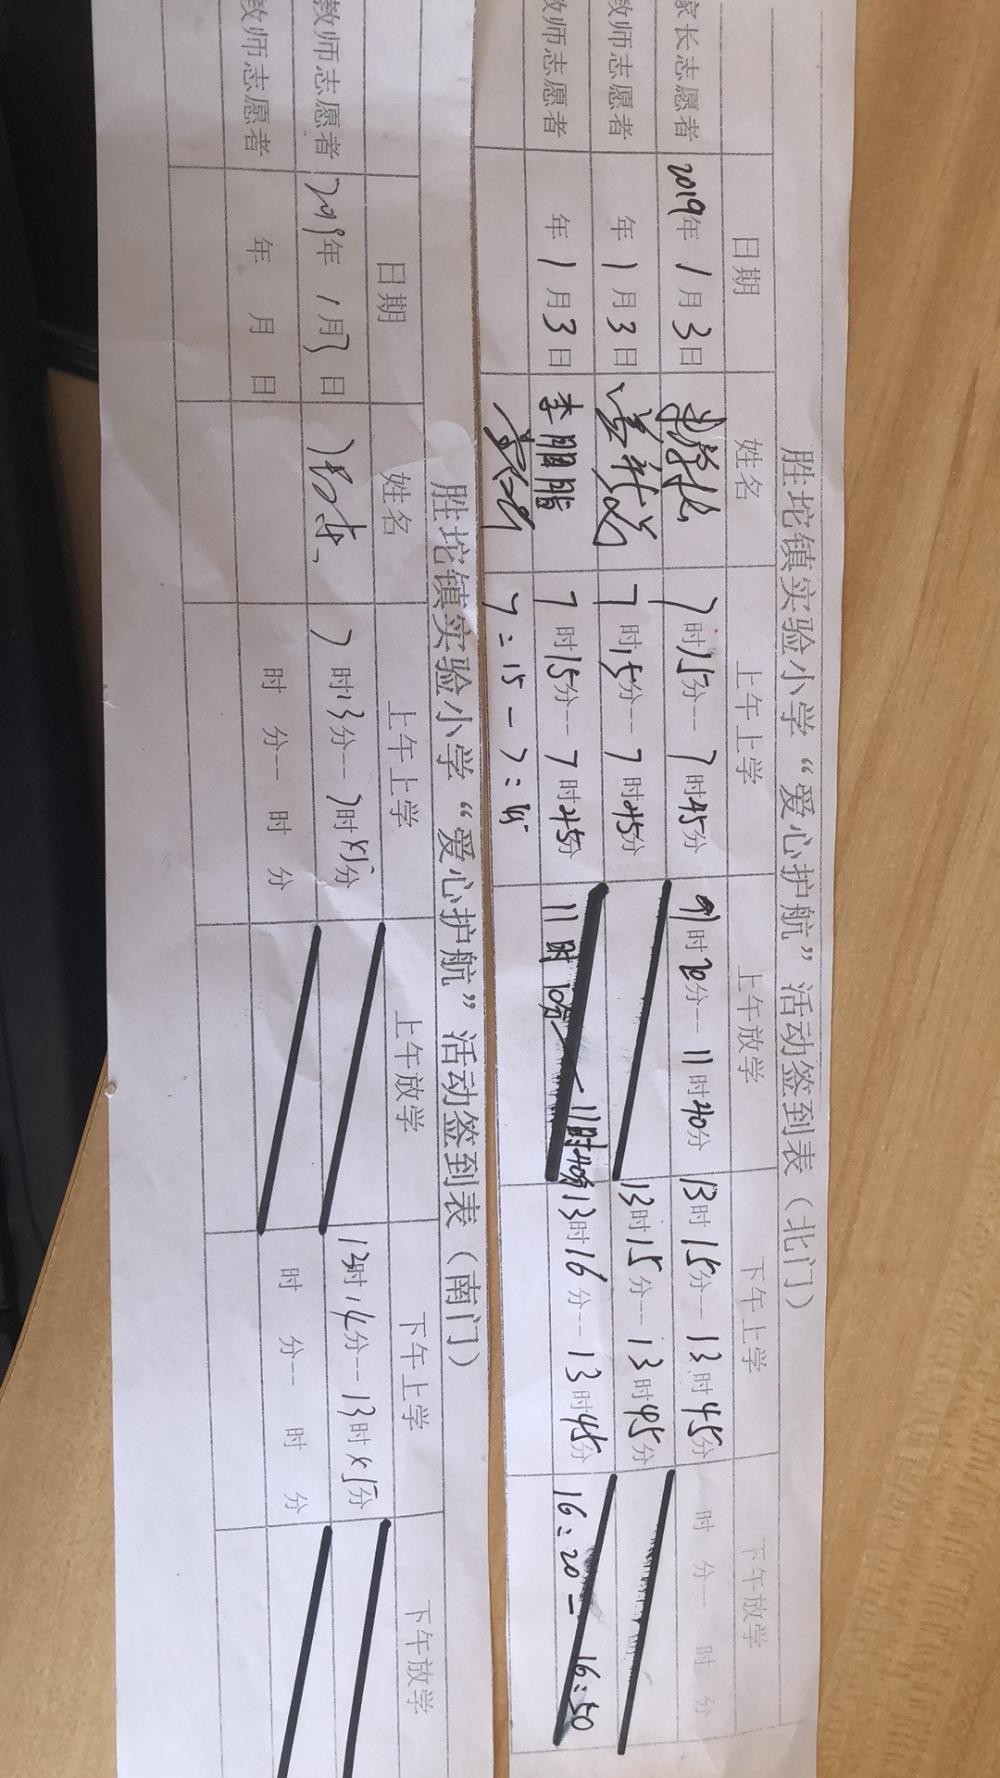 胜坨镇实验小学“爱心护航”活动签到表（北门）
日期 姓名 上午上学 上午放学 下午上学 下午放学
家长志愿者 2019年1月3日 7时15分--7时45分 时20分--11时40分 13时15分--13时45分 时 分-- 时 分
教师志愿者 年1月3日 7时15分--7时45分 13时15分--13时45分
教师志愿者 年1月3日 李胭脂 7时15分--7时45分 11时10分 11时40分 13时16分--13时45分 16:20-16:50
7:15-7:45
胜坨镇实验小学“爱心护航”活动签到表（南门）
日期 姓名 上午上学 上午放学 下午上学 下午放学
教师志愿者 2019年1月3日 7时13分--7时45分 13时14分--13时45分
教师志愿者 年 月 日 时 分-- 时 分 时 分-- 时 分